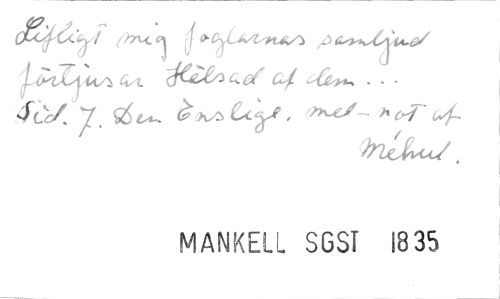 Lifligt mig foglarnas samljud
förtjusar Hälsad af dem...
Sid. 7. Den Enslige. mel-not af
Méhul.
MANKELL SGST 1835